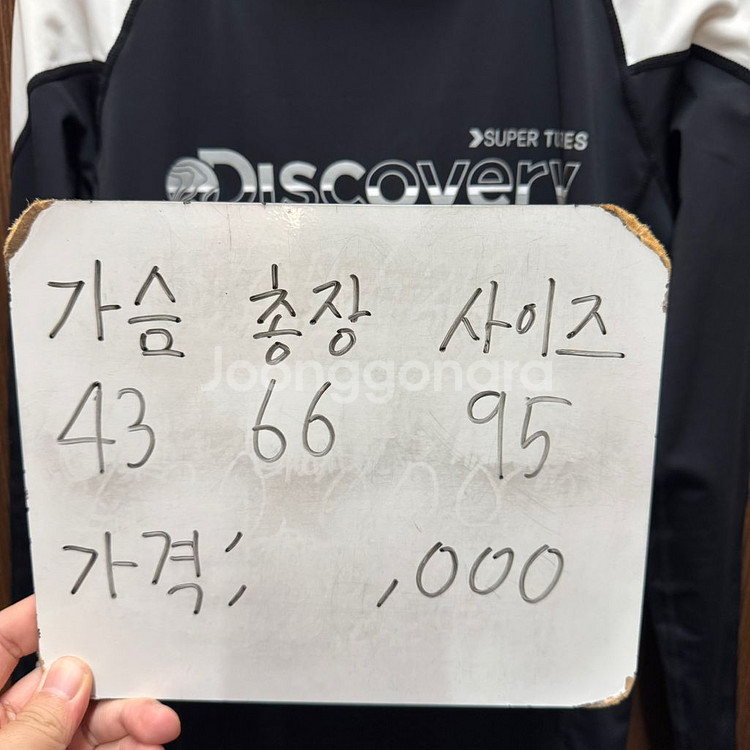 ❯SUPER TUBES
Discovery
가슴 총장 사이즈
Joonggonara
43 66 95
가격; ,000